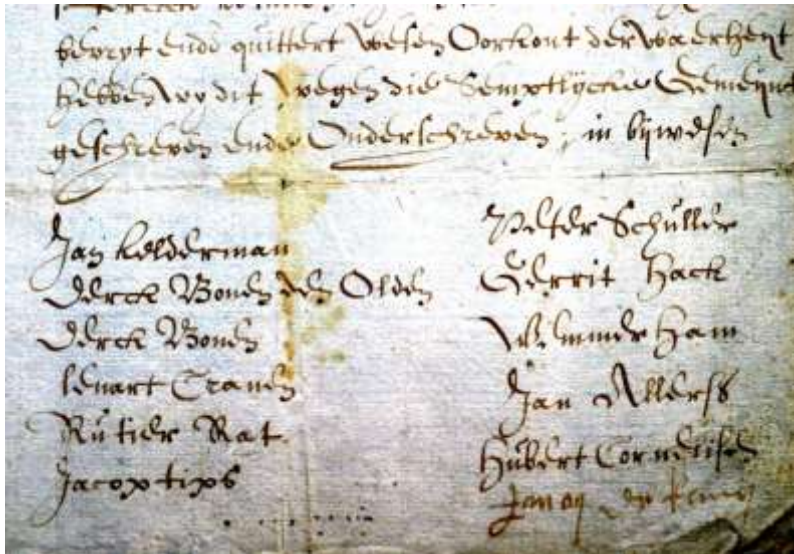 bevryt ende quittert wesen Oorkont der waerheyt
hebben wy dit wegen die Semptlycke Gemeynt
geschreven ende Onderschreven, in bijwesen
Jan kelderman
Derck Bonen den Olden
Derck Bonen
lenart Cranen
Rutier Rat
Jacop tips
Peter Schuller
Gerrit Hack
Wemmer Ham
Jan Allerss
Hubert Cornelisen